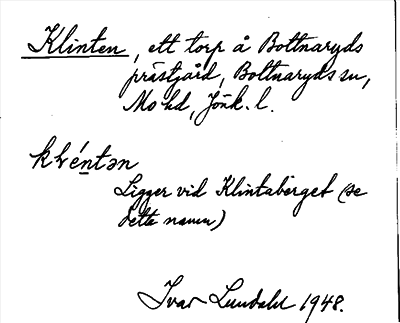 Klinten, ett torp å Bottnaryds
prästgård, Bottnaryds sn,
Mo hd, Jönk. l.
klé̱ntən
Ligger vid Klintaberget (se
detta namn)
Ivar Lundahl 1948.